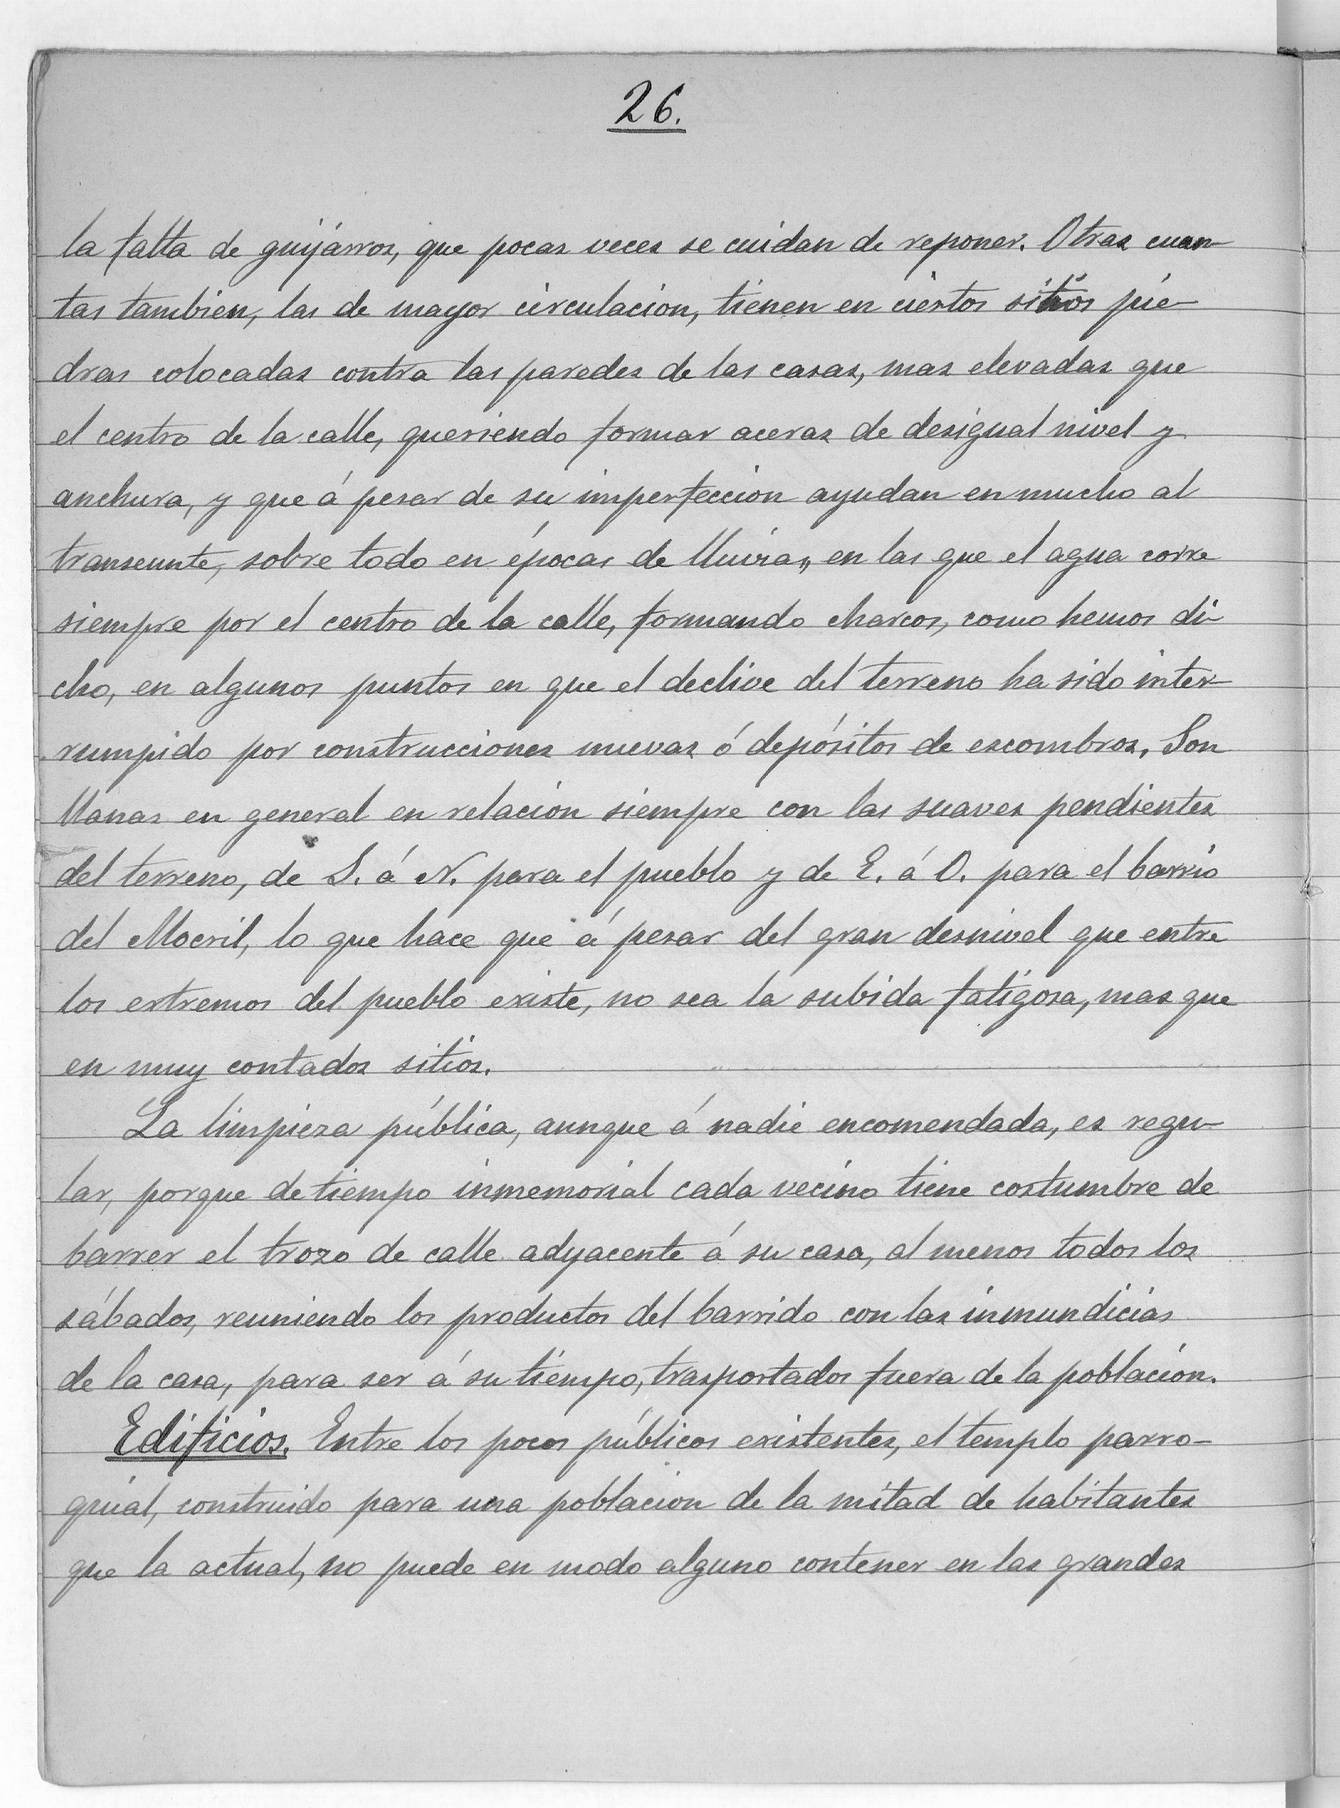 26.
la falta de guijárros, que pocas veces se cuidan de reponer. Otras cuan-
tas tambien, las de mayor circulacion, tienen en ciertos sitios pie-
dras colocadas contra las paredes de las casas, mas elevadas que
el centro de la calle, queriendo formar aceras de desigual nivel y
anchura, y que á pesar de su imperfeccion ayudan en mucho al
transeunte, sobre todo en épocas de lluvias, en las que el agua corre
siempre por el centro de la calle, formando charcos, como hemos di-
cho, en algunos puntos en que el declive del terreno ha sido inter-
rumpido por construcciones nuevas ó depósitos de escombros. Son
llanas en general en relacion siempre con las suaves pendientes
del terreno, de S. á N. para el pueblo y de E. á O. para el barrio
del Mocril, lo que hace que á pesar del gran desnivel que entre
los extremos del pueblo existe, no sea la subida fatigosa, mas que
en muy contados sitios.
La limpieza pública, aunque á nadie encomendada, es regu-
lar, porque de tiempo inmemorial cada vecino tiene costumbre de
barrer el trozo de calle adyacente á su casa, al menos todos los
sábados, reuniendo los productos del barrido con las inmundicias
de la casa, para ser á su tiempo, trasportados fuera de la poblacion.
Edificios. Entre los pocos públicos existentes, el templo parro-
quial, construido para una poblacion de la mitad de habitantes
que la actual, no puede en modo alguno contener en las grandes